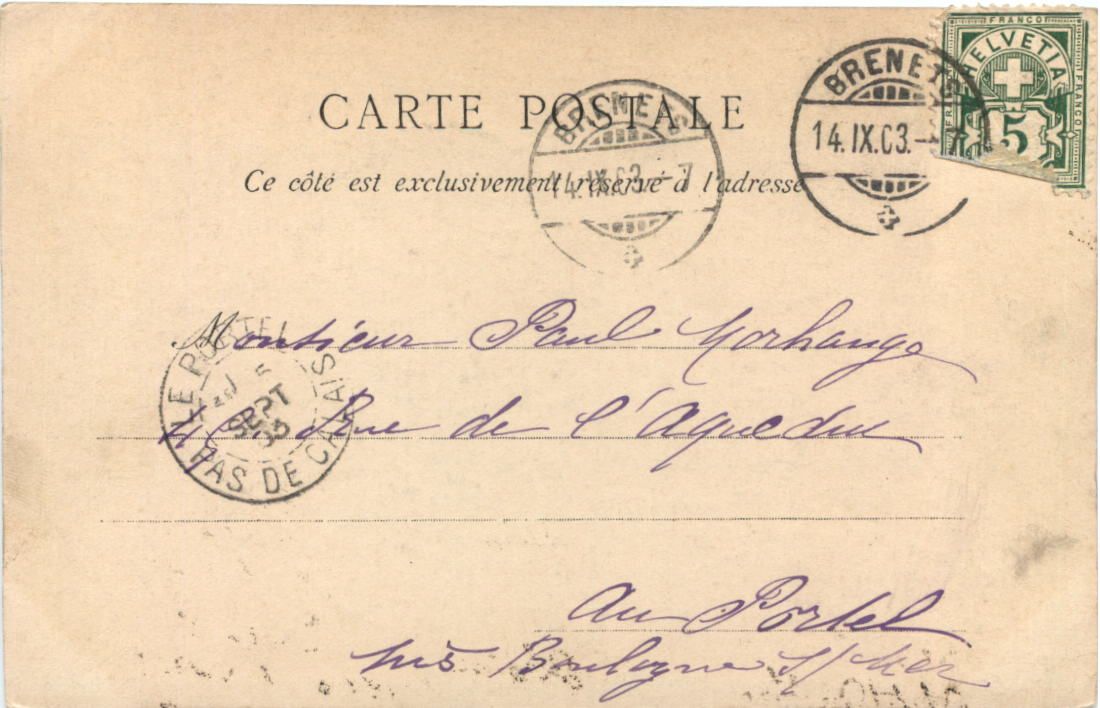 FRANCO
HELVETIA
FRANCO
5
CARTE POSTALE
Ce côté est exclusivement réservé à l'adresse
BRENETS
14.IX.03.-7
BRENETS
14.IX.03.-7
Monsieur Paul Morhange
Rue de l'Aqueduc
LE PORTEL
SEPT
03
PAS DE CALAIS
Au Portel
près Boulogne s/Mer